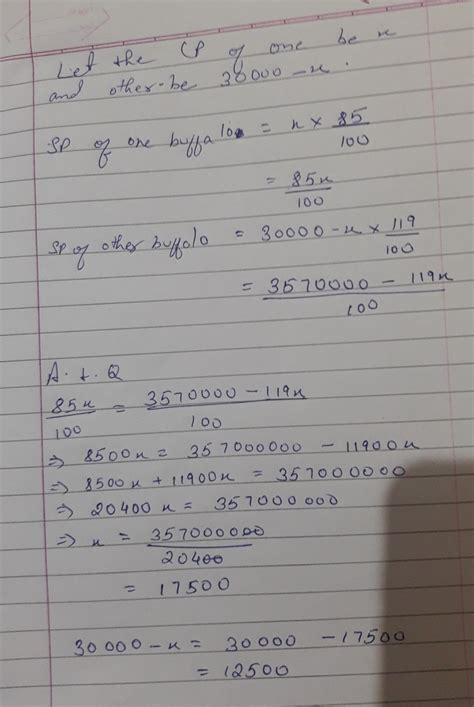 Let the CP of one be x
and other be 30000 - x.
SP of one buffalo = x × 85/100
= 85x/100
SP of other buffolo = 30000 - x × 119/100
= 3570000 - 119x/100
A. t. Q
85x/100 = 3570000 - 119x/100
⇒ 8500x = 357000000 - 11900x
⇒ 8500x + 11900x = 357000000
⇒ 20400x = 357000000
⇒ x = 357000000/20400
= 17500
30000 - x = 30000 - 17500
= 12500